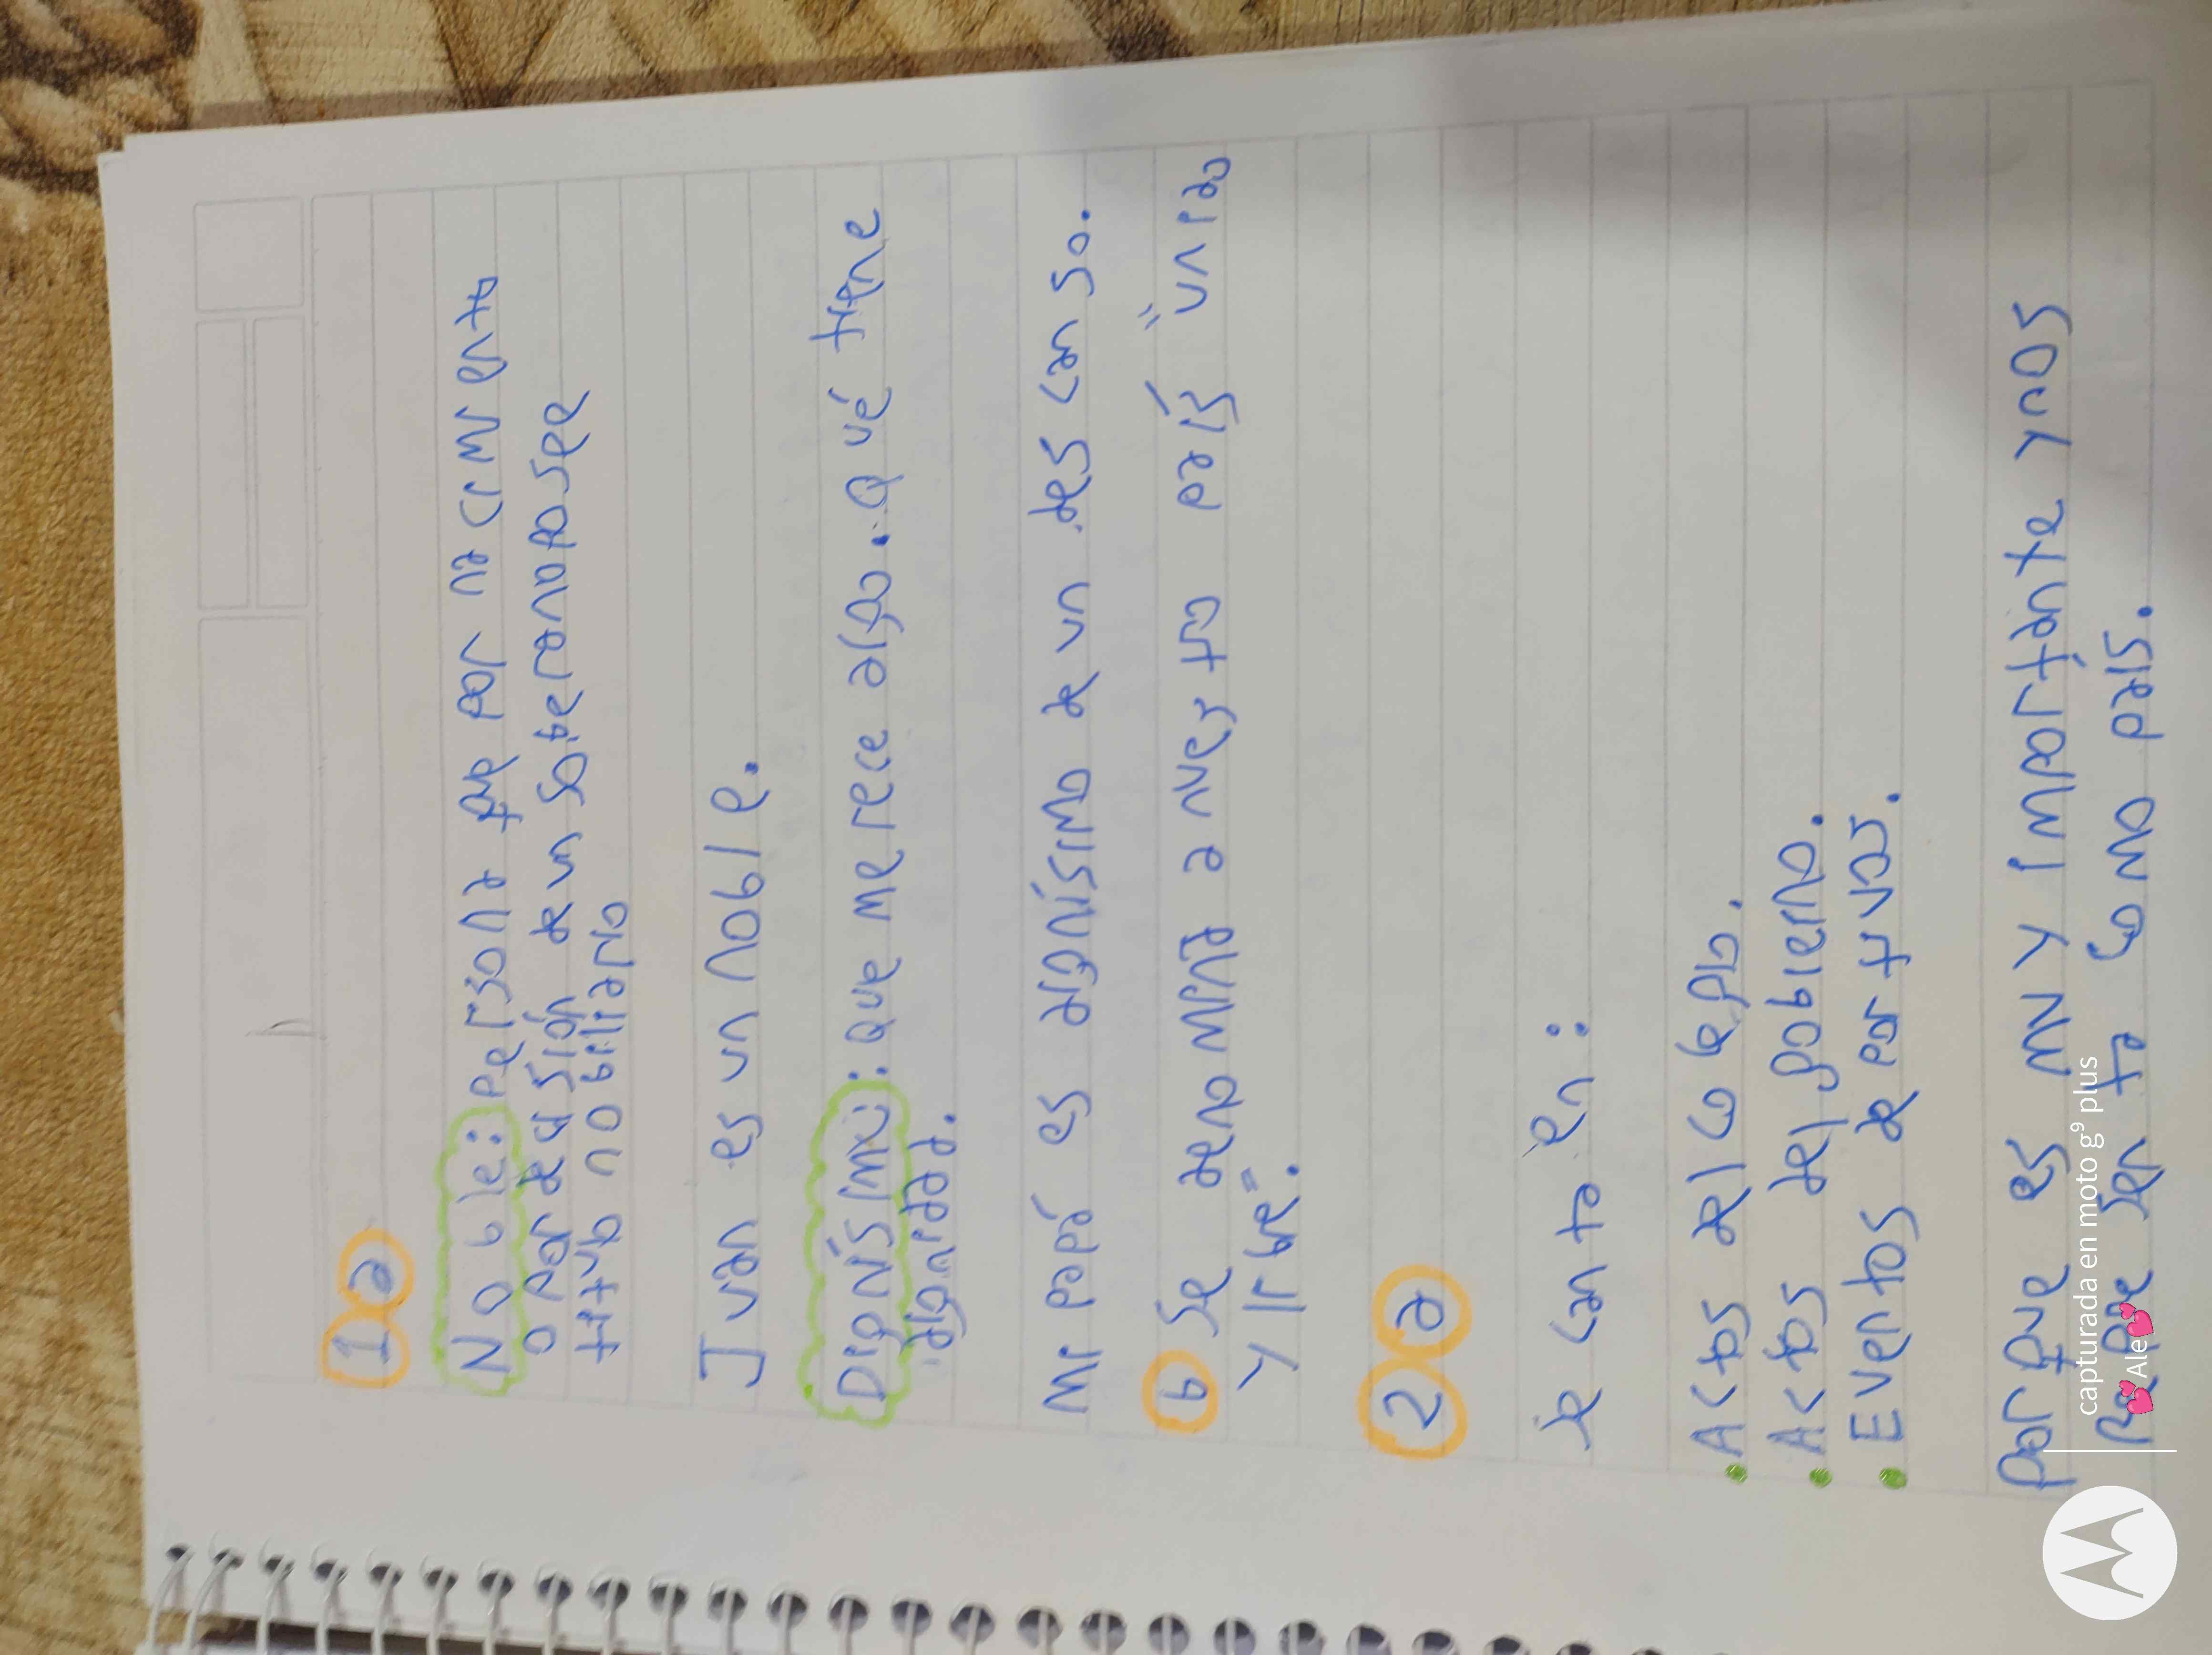 1 a
No ble: persona que por nacimiento
o por decisión de un soberano posee
título nobiliario
Juan es un noble.
Dignísimo: Que merece algo. Qué tiene
dignidad.
Mi papá es dignísimo de un descanso.
b Se denomina a nuestro país "unido
y libre".
2 a
Se canta en:
• Actos de colegio.
• Actos del gobierno.
• Eventos deportivos.
Porque es muy importante y nos
representa como país.
capturada en moto g⁹ plus
💕Ale💕